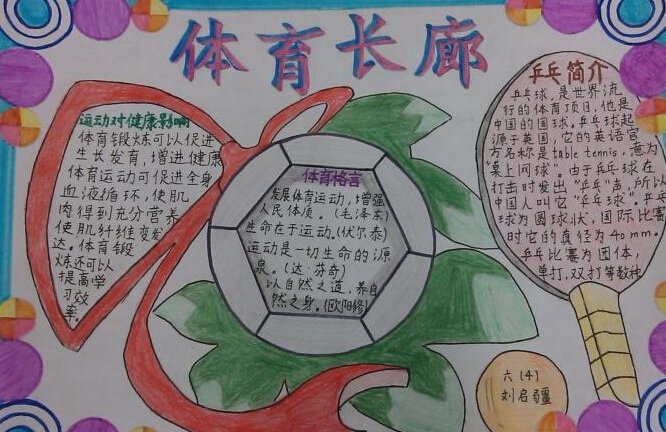 体育长廊
运动对健康影响
体育锻炼可以促进
生长发育,增进健康
体育运动可促进全身
血液循环,使肌
肉得到充分营养
使肌纤维变发
达。体育锻
炼还可以
提高学
习效
率。
体育格言
发展体育运动,增强
人民体质。(毛泽东)
生命在于运动。(伏尔泰)
运动是一切生命的源
泉。(达·芬奇)
以自然之道,养自
然之身。(欧阳修)
乒乓简介
乒乓球,是世界流
行的体育项目,他是
中国的国球,乒乓球起
源于英国,它的英语官
方名称是table tennis,意为
“桌上网球”。由于乒乓球在
打击时发出“乒乓”声,所以
中国人叫它“乒乓球”。乒乓
球为圆球状,国际比赛
时它的直径为40mm.
乒乓比赛为团体,
单打,双打等数种
六(4)
刘启疆